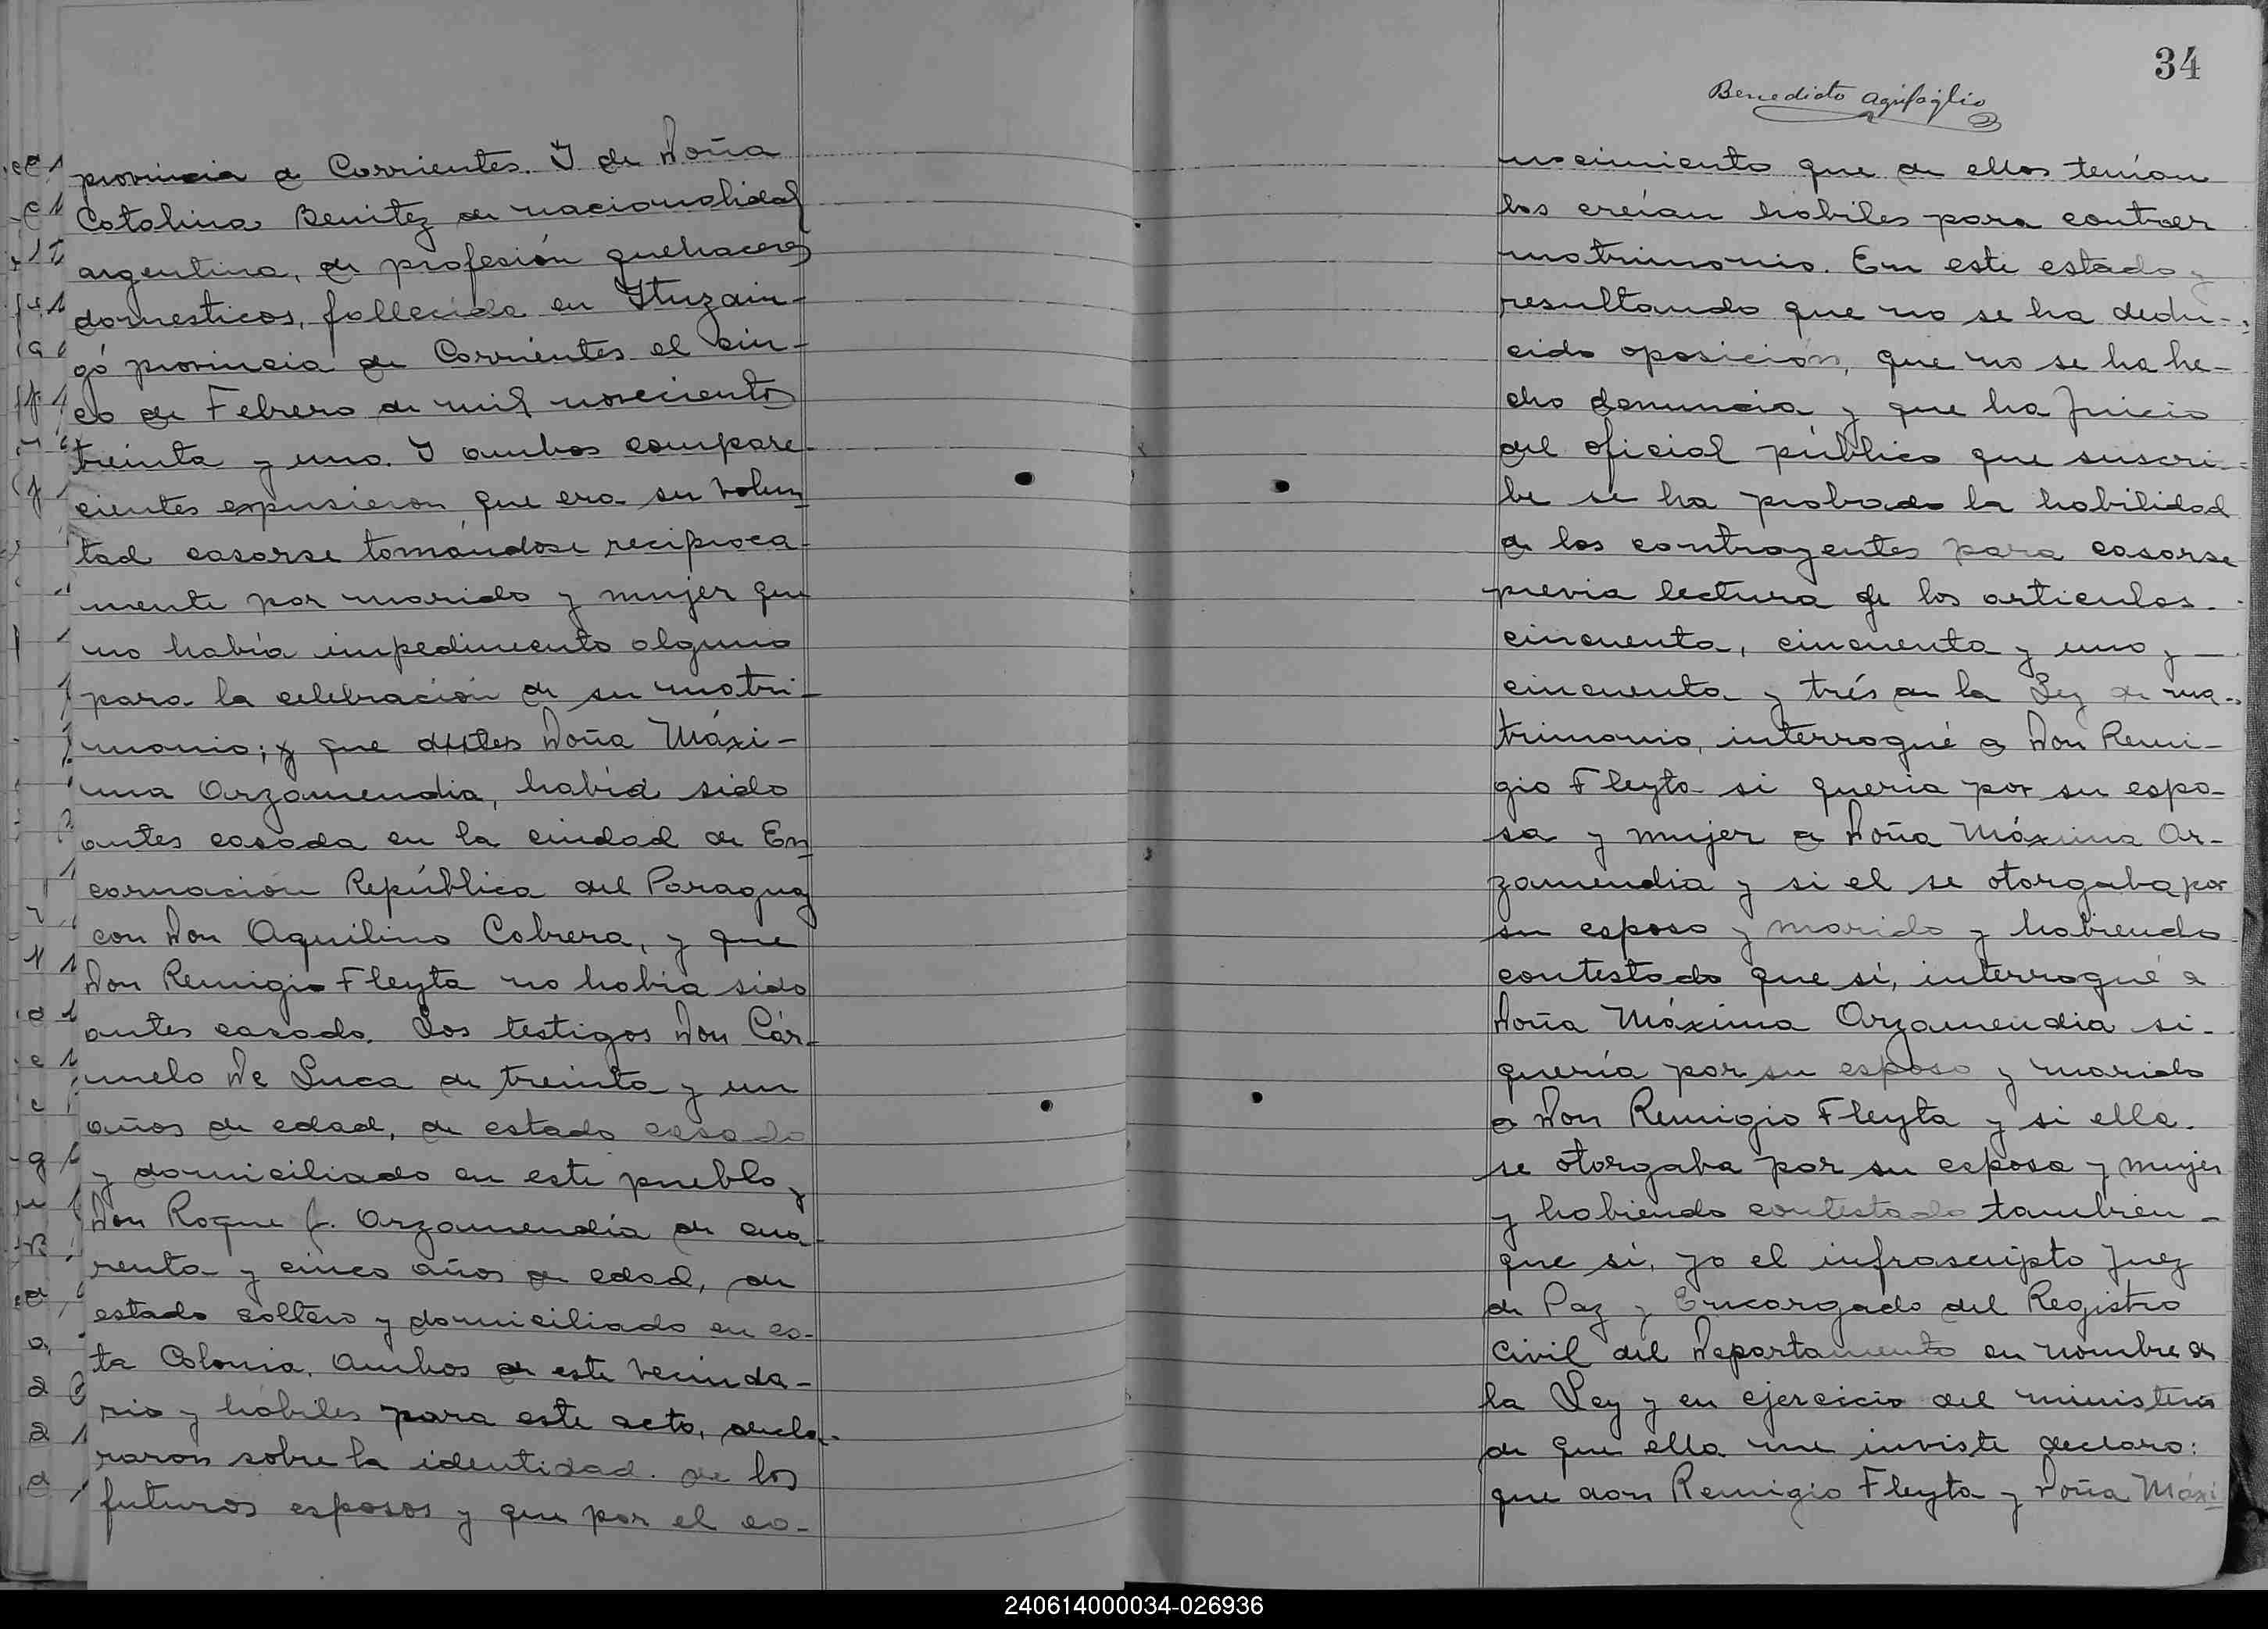 provincia de Corrientes. I de Doña
Catalina Benitez de nacionalidad
argentina, de profesión quehaceres
domesticos, fallecida en Ituzain-
gó provincia de Corrientes el cin-
co de Febrero de mil novecientos
treinta y uno. I ambos compare-
cientes expusieron que era su volun-
tad casarse tomándose reciproca-
mente por marido y mujer que
no había impedimento alguno
para la celebración de su matri-
monio; y que Doña Máxi-
ma Arzamendia, había sido
antes casada en la ciudad de En-
carnación República del Paraguay
con Don Aquilino Cabrera, y que
Don Remigio Fleyta no habia sido
antes casado. Los testigos Don Cár-
melo De Luca de treinta y un
años de edad, de estado casado
y domiciliado en este pueblo y
Don Roque J. Arzamendia de cua-
renta y cinco años de edad, de
estado soltero y domiciliado en es-
ta Colonia. Ambos de este vecinda-
rio y hábiles para este acto, decla-
raron sobre la identidad de los
futuros esposos y que por el co-
34
Benedicto
nocimiento que de ellos tenían
los creían hábiles para contraer
matrimonio. En este estado y
resultando que no se ha dedu-
cido oposición, que no se ha he-
cho denuncia y que ha Juicio
del oficial público que suscri-
be se ha probado la habilidad
de los contrayentes para casarse
previa lectura de los articulos
cincuenta, cincuenta y uno y
cincuenta y trés de la Ley de ma-
trimonio, interrogué a Don Remi-
gio Fleyta si queria por su espo-
sa y mujer a Doña Máxima Ar-
zamendia y si el se otorgaba por
su esposo y marido y habiendo
contestado que sí, interrogué a
Doña Máxima Arzamendia si
quería por su esposo y marido
a Don Remigio Fleyta y si ella
se otorgaba por su esposa y mujer
y habiendo contestado también
que sí, yo el infrascripto Juez
de Paz y Encargado del Registro
Civil del Departamento en nombre de
la Ley y en ejercicio del ministerio
de que ella me inviste declaro:
que don Remigio Fleyta y Doña Máxi
240614000034-026936